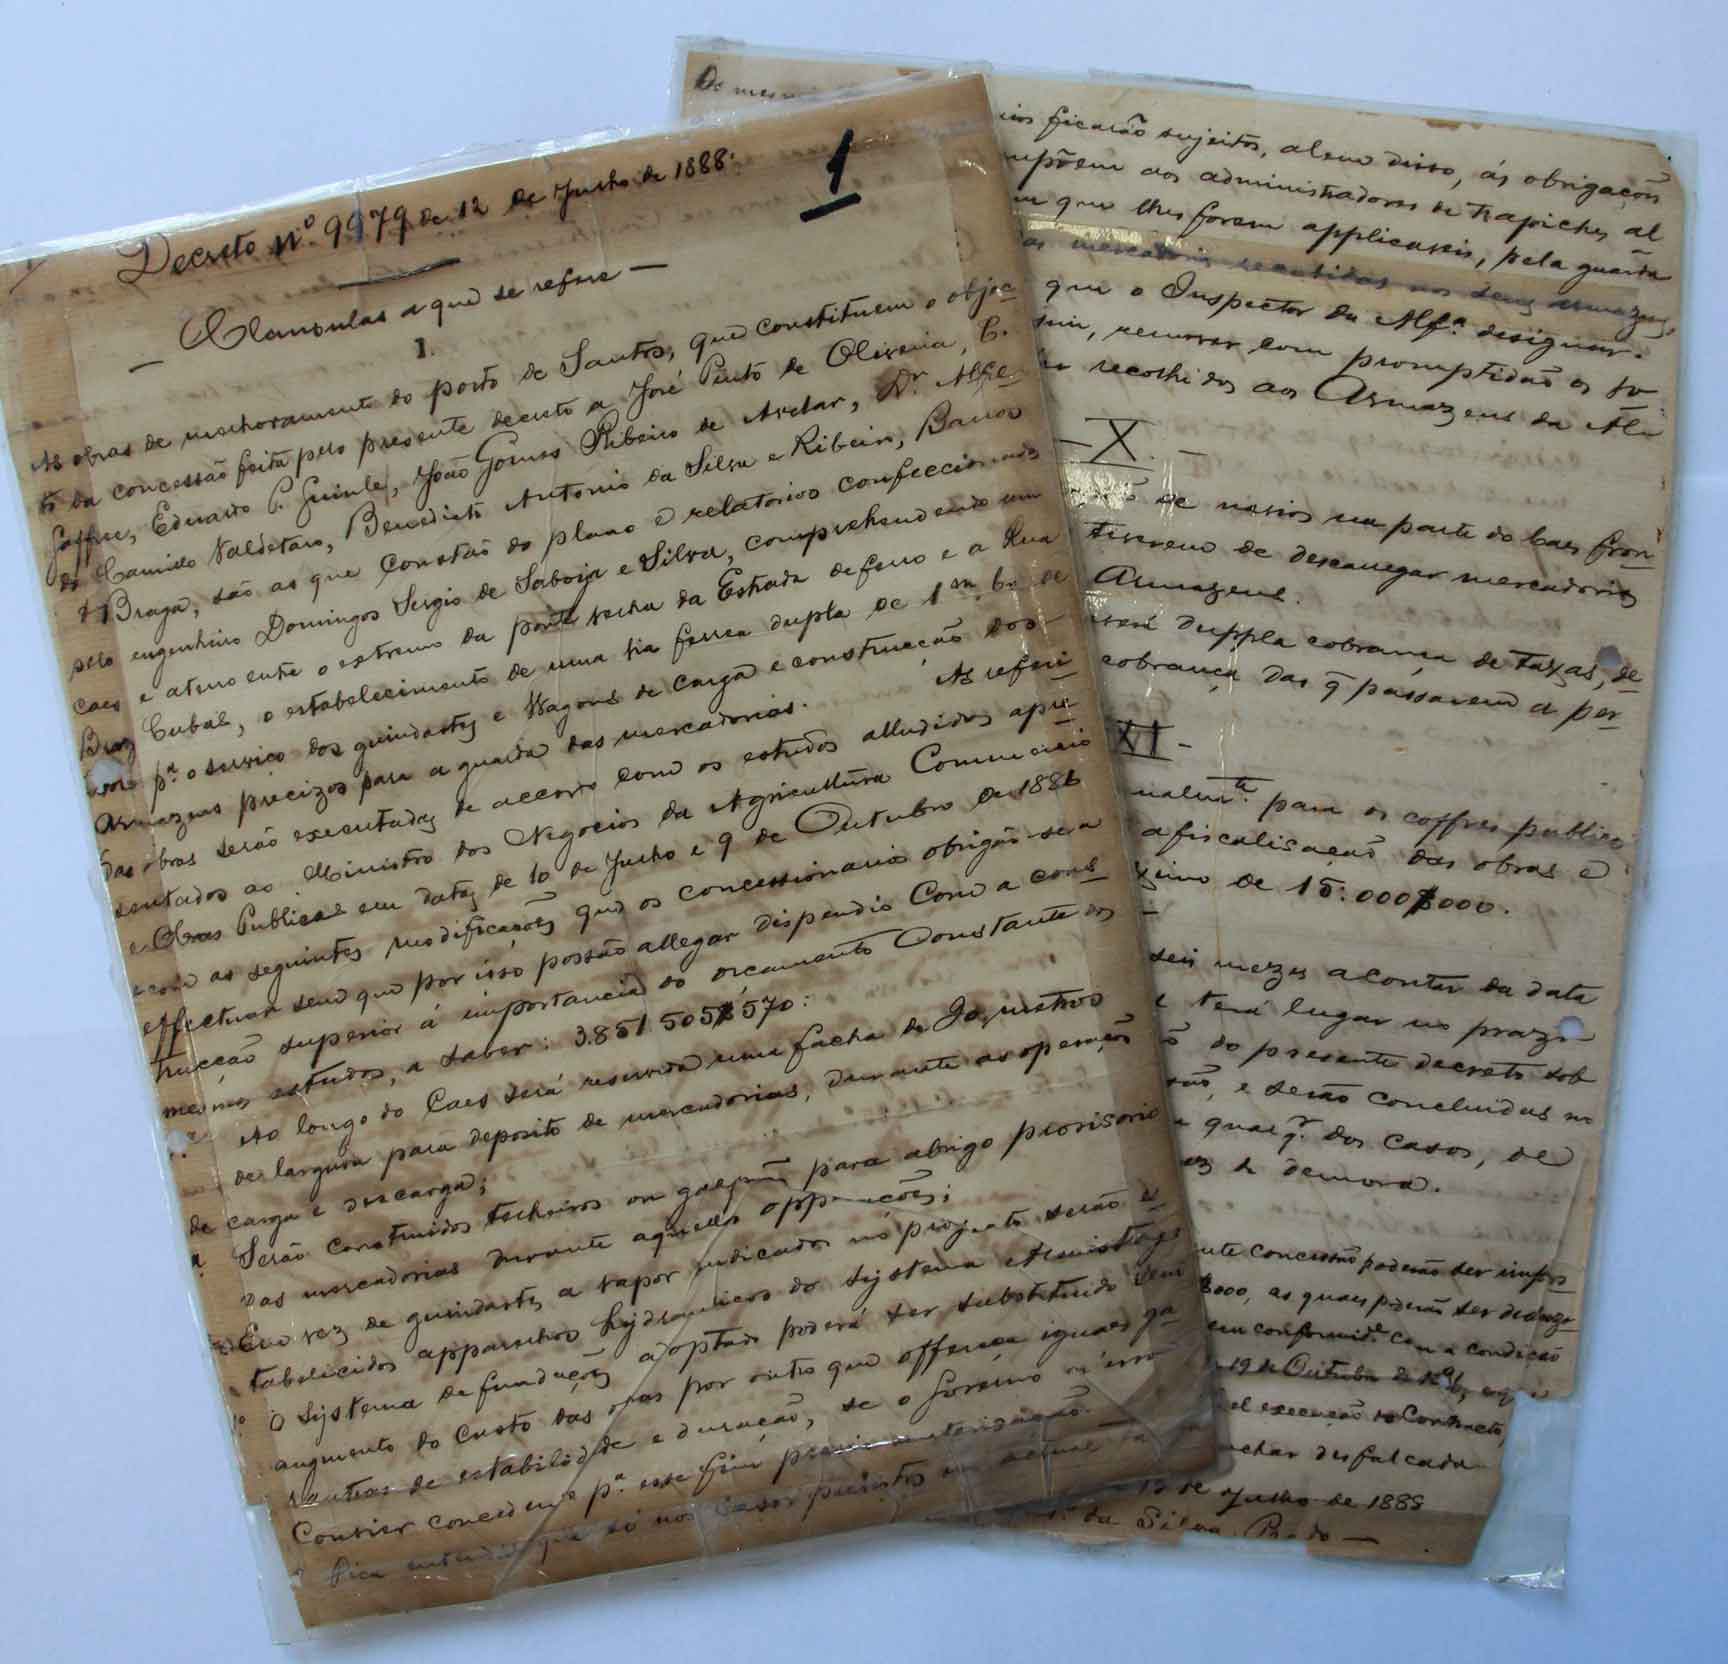 1
Decreto Nº 9979 de 12 de Julho de 1888.
— Clausulas a que se refere —
I.
As obras de melhoramento do porto de Santos, que constituem o objec-
to da concessão feita pelo presente decreto a José Pinto de Oliveira, C.
Gaffree, Eduardo P. Guinle, João Gomes Ribeiro de Avelar, Dr. Alfre-
do Camillo Valdetaro, Benedicto Antonio da Silva e Ribeiro, Barros
& Braga, são as que constão do plano e relatorios confeccionados
pelo engenheiro Domingos Sergio de Saboia e Silva, comprehendendo um
caes e aterro entre o extremo da ponte velha da Estrada de ferro e a Rua
Braz Cubas, o estabelecimento de uma via ferrea dupla de 1m, de
pª o serviço dos guindastes e Wagons de carga e construcção dos
Armazens precizos para a guarda das mercadorias. As referi-
das obras serão executadas de accordo com os estudos alludidos apre-
sentados ao Ministro dos Negocios da Agricultura Commercio
e Obras Publicas em datas de 10 de Julho e 9 de Outubro de 1886
e com as seguintes modificações que os concessionarios obrigão-se a
effectuar sem que por isso possão allegar dispendio com a cons-
trucção superior á importancia do orçamento constante dos
mesmos estudos, a saber: 3.851.505$570:
Ao longo do Caes será reservada uma facha de 20, metros
de largura para deposito de mercadorias, durante as operações
de carga e descarga;
Serão construidos telheiros ou galpões para abrigo provisorio
das mercadorias durante aquellas opperações;
Em vez de guindastes a vapor indicados no projecto serão es-
tabelecidos apparelhos hydraulicos do systema Armstrong
O systema de fundações adoptado poderá ser substituido sem
augmento do custo das obras por outro que offereça iguaes ga-
rantias de estabilidade e duração, se o Governo n'isso
convier concedendo pª esse fim previa autorização.
Fica entendido que só nos casos previstos na actual
Os mesmos
ficarão sujeitos, alem disso, ás obrigações
impõem aos administradores de trapiches al
que lhes forem applicaveis, pela guarda
as mercadorias recebidas nos seus armazens,
que o Inspector da Alfª designar.
remover com promptidão os vo
recolhidos aos Armazens da Al
— X. —
de navios na parte do Caes fron-
tiverem de descarregar mercadorias
Armazens.
duppla cobrança de taxas, de-
cobrança das q̃ passarem a per-
XI —
para os coffres publicos
a fiscalisação das obras e
de 15:000$000.
seis mezes a contar da data
e terá lugar no prazo
do presente decreto sob
e serão concluidas no
qualqr. dos casos, de
de demora.
concessão poderão ser impos-
$000, as quaes poderão ser
em conformide. com a condição
19 de Outubro de
execução do Contracto,
achar desfalcada
12 de Julho de 1888
da Silva Prado —